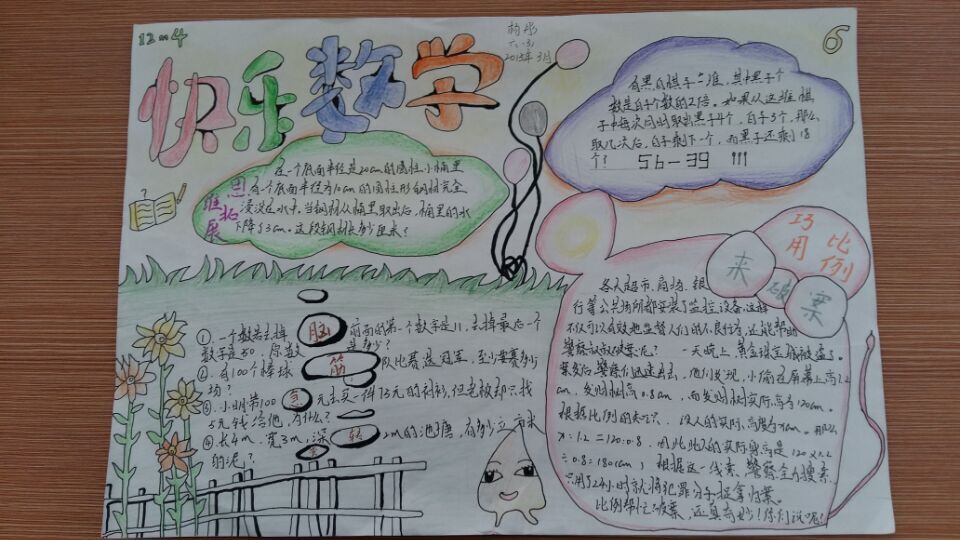 12 — 4
快乐数学
六.3
2015年3月
6
在一个底面半径是20cm的圆柱小桶里
有一个底面半径为10cm的圆柱形钢材完全
浸没在水中,当钢材从桶里取出后,桶里的水
下降了3cm。这段钢材长多少厘米?
思维拓展
有黑白棋子一堆,其中黑子个
数是白子个数的2倍。如果从这堆棋
子中每次同时取出黑子4个,白子3个,那么
取几次后,白子剩下一个,而黑子还剩18
个?
56-39 !!!
巧用比例
来破案
各大超市、商场、银
行等公共场所都安装了监控设备,这样
不仅可以有效地监督人们的不良行为,还能帮助
警察叔叔破案呢? 一天晚上,黄金珠宝城被盗了。
案发后,警察们迅速赶到,他们发现,小偷在屏幕上高1.2
cm,发财树高0.8cm,而发财树实际高为120cm。
根据比例的知识,设人的实际高度为xcm。那么
x:1.2=120:0.8,因此此人的实际身高是120×1.2
÷0.8=180(cm),根据这一线索,警察全力搜索,
只用了24小时就将犯罪分子捉拿归案。
比例帮忙破案,还真奇妙!你们说呢?
脑筋急转
①.一个数去掉前面的第一个数字是11,去掉最后一个
数字是50,原数是多少?
②.有100个棒球队比赛选冠军,至少要赛多少
场?
③.小明带100元去买一件75元的衬衫,但老板却只找
5元钱给他,为什么?
④.长4m,宽3m,深2m的池塘,有多少立方米
的泥?